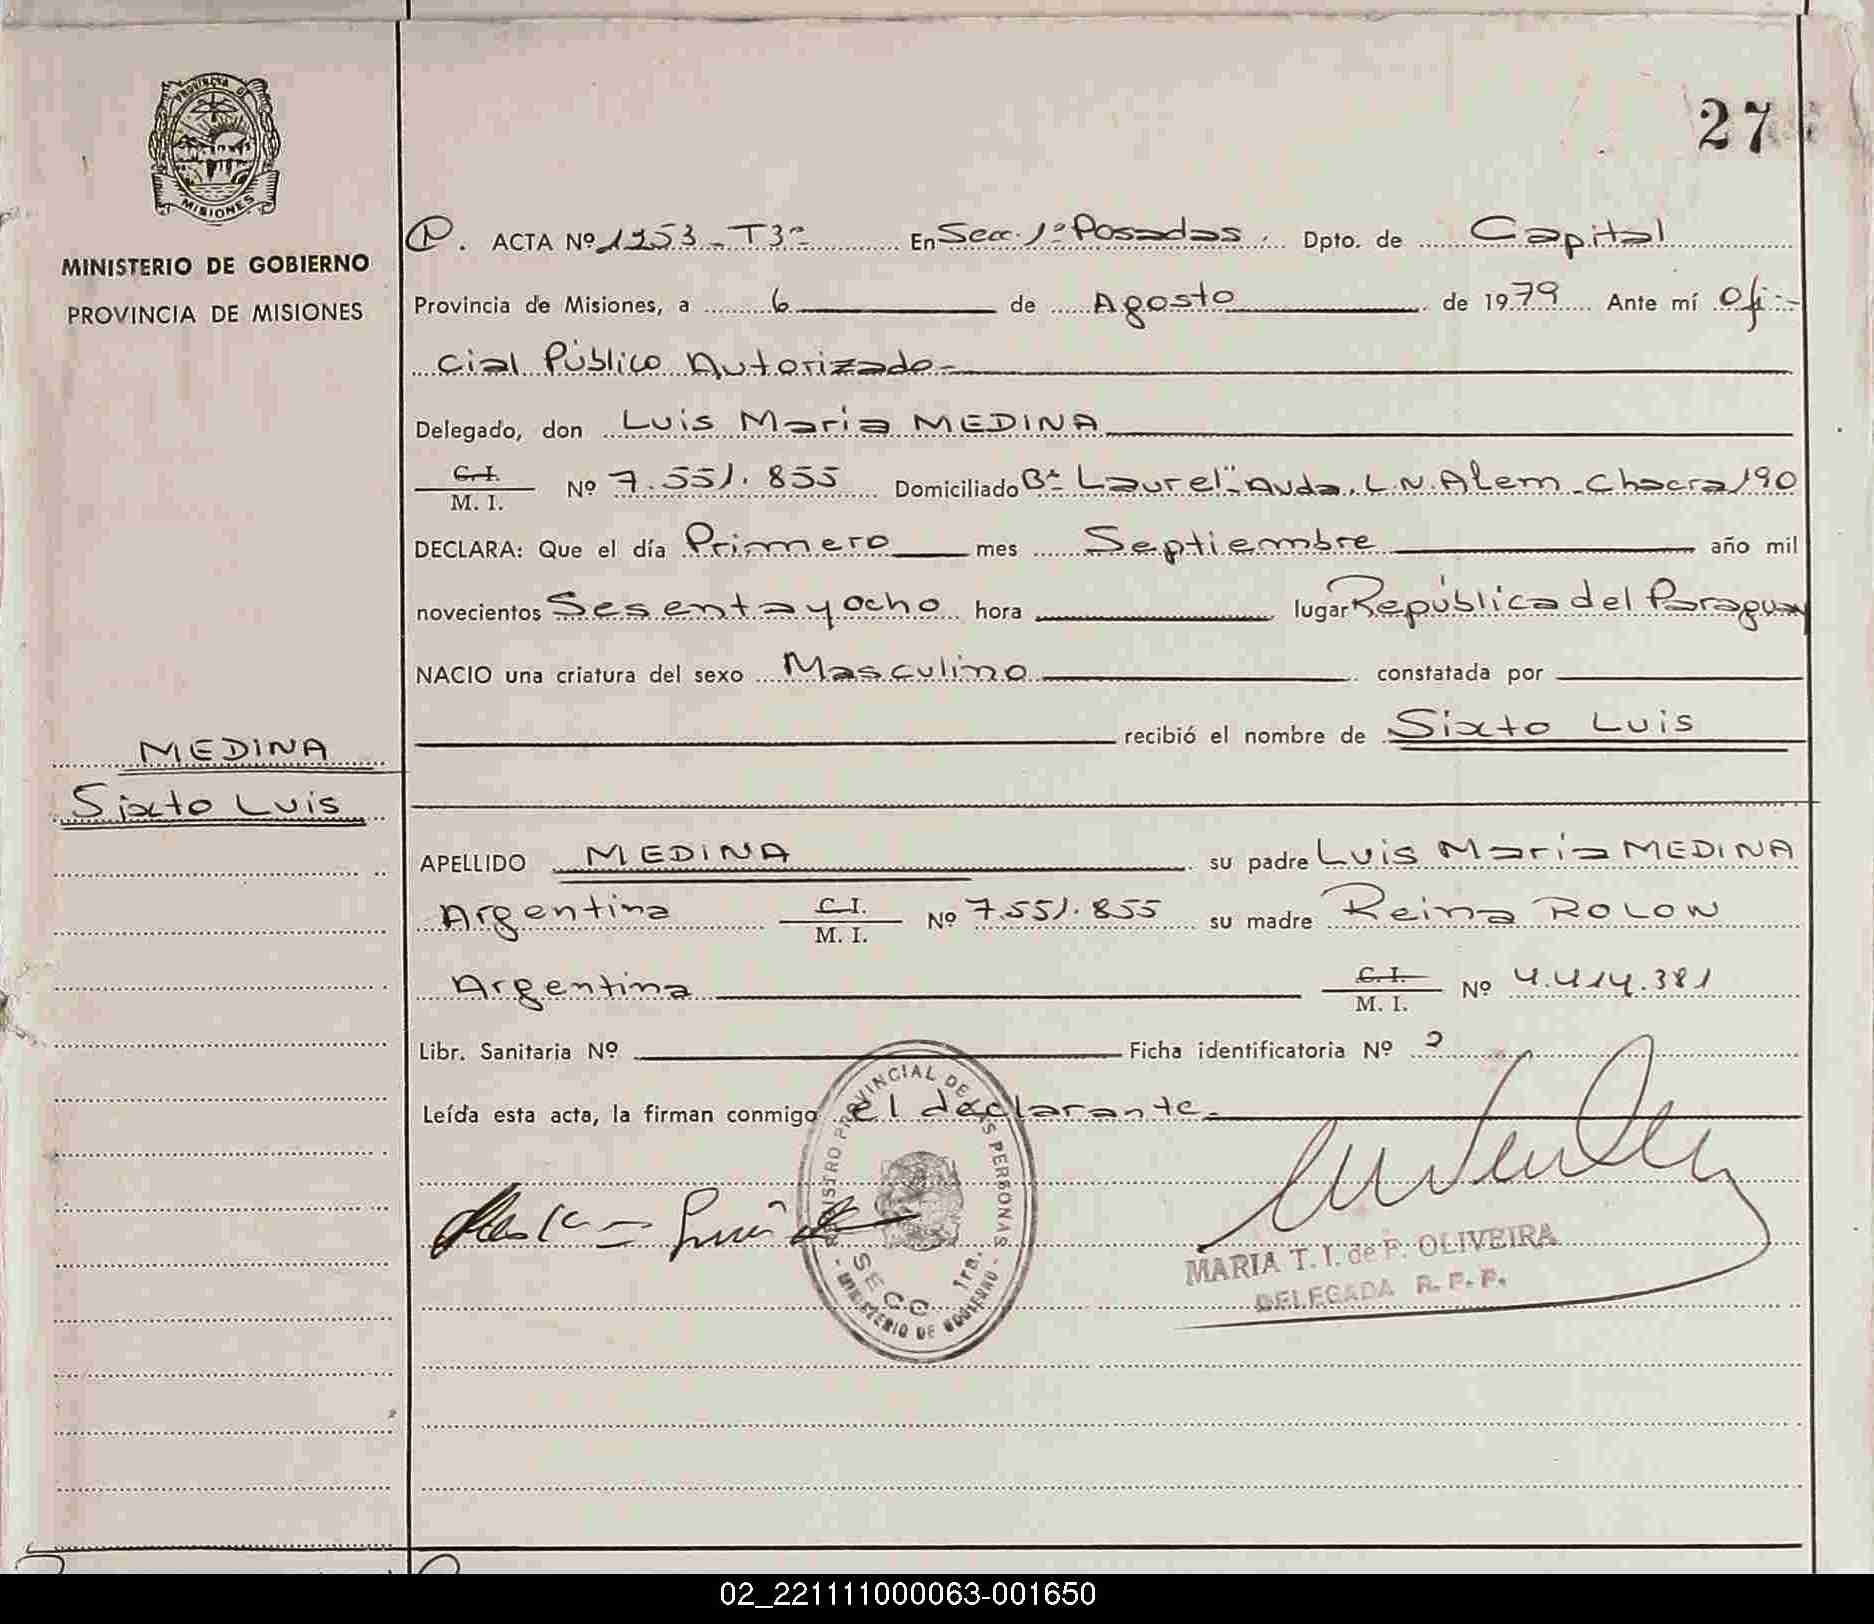 PROVINCIA DE
MISIONES
MINISTERIO DE GOBIERNO
PROVINCIA DE MISIONES
MEDINA
Sixto Luis
27
P. ACTA Nº 1253 - T3º En Secc. 1º Posadas. Dpto. de Capital
Provincia de Misiones, a 6 de Agosto de 1979 Ante mí Ofi-
cial Público Autorizado-
Delegado, don Luis Maria MEDINA
C.I.
M. I. Nº 7.551.855 Domiciliado Bº Laurel"-Avda. L.N.Alem - Chacra 190
DECLARA: Que el día Primero mes Septiembre año mil
novecientos Sesenta y ocho hora lugar República del Paraguay
NACIO una criatura del sexo Masculino constatada por
recibió el nombre de Sixto Luis
APELLIDO MEDINA su padre Luis Maria MEDINA
Argentina C.I. M. I. Nº 7.551.855 su madre Reina ROLON
Argentina C.I. M. I. Nº 4.414.381
Libr. Sanitaria Nº Ficha identificatoria Nº
Leída esta acta, la firman conmigo el declarante.-
REGISTRO PROVINCIAL DE LAS PERSONAS
SECC 1ra.
- MINISTERIO DE GOBIERNO -
MARIA T. I. de P. OLIVEIRA
DELEGADA R. P. P.
02_221111000063-001650